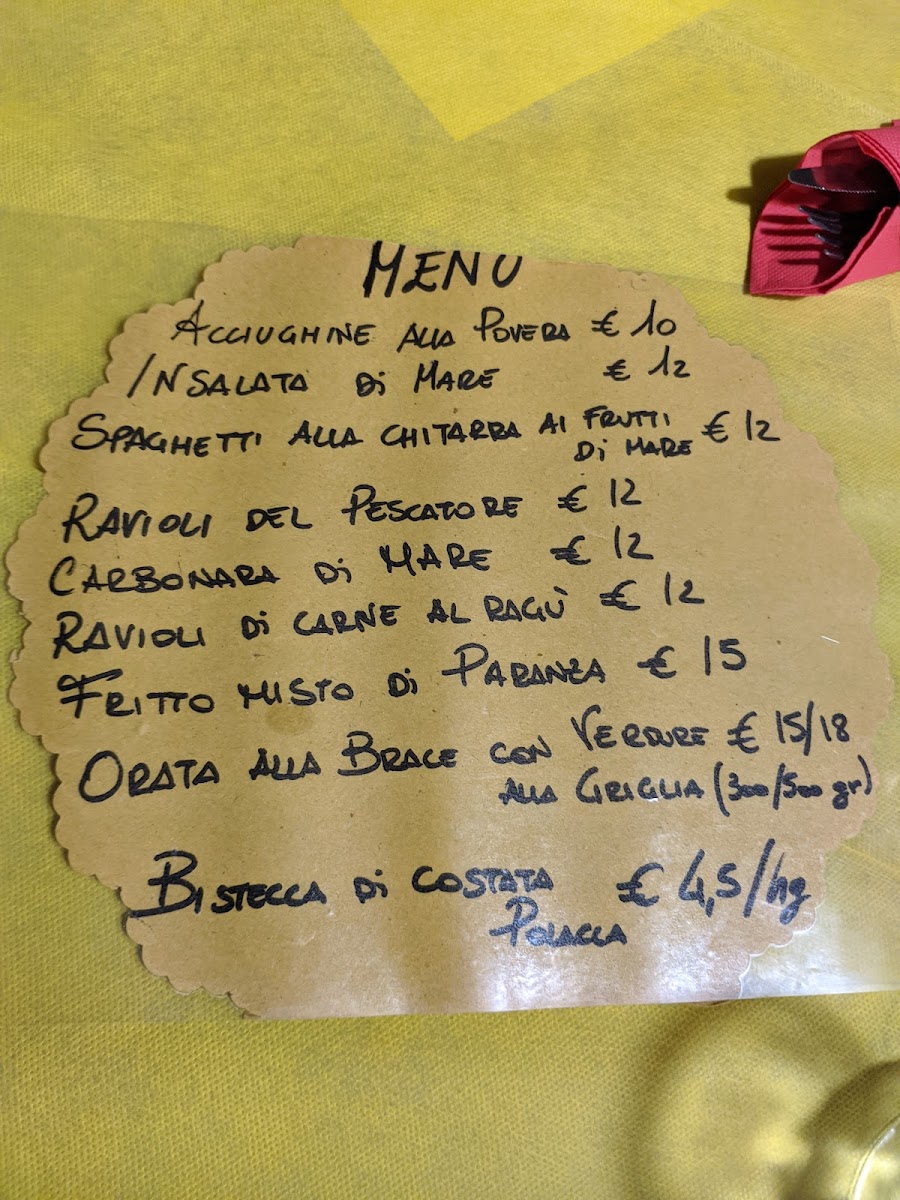 MENU
ACCIUGHINE ALLA POVERA € 10
INSALATA Di MARE € 12
SPAGHETTI ALLA CHITARRA AI FRUTTI
Di MARE € 12
RAVIOLI DEL PESCATORE € 12
CARBONARA Di MARE € 12
RAVIOLI Di CARNE AL RAGÙ € 12
FRITTO MISTO Di PARANZA € 15
ORATA ALLA BRACE CON VERDURE € 15/18
ALLA GRIGLIA (300/500 gr)
BISTECCA Di COSTATA € 4,5/hg
POLACCA